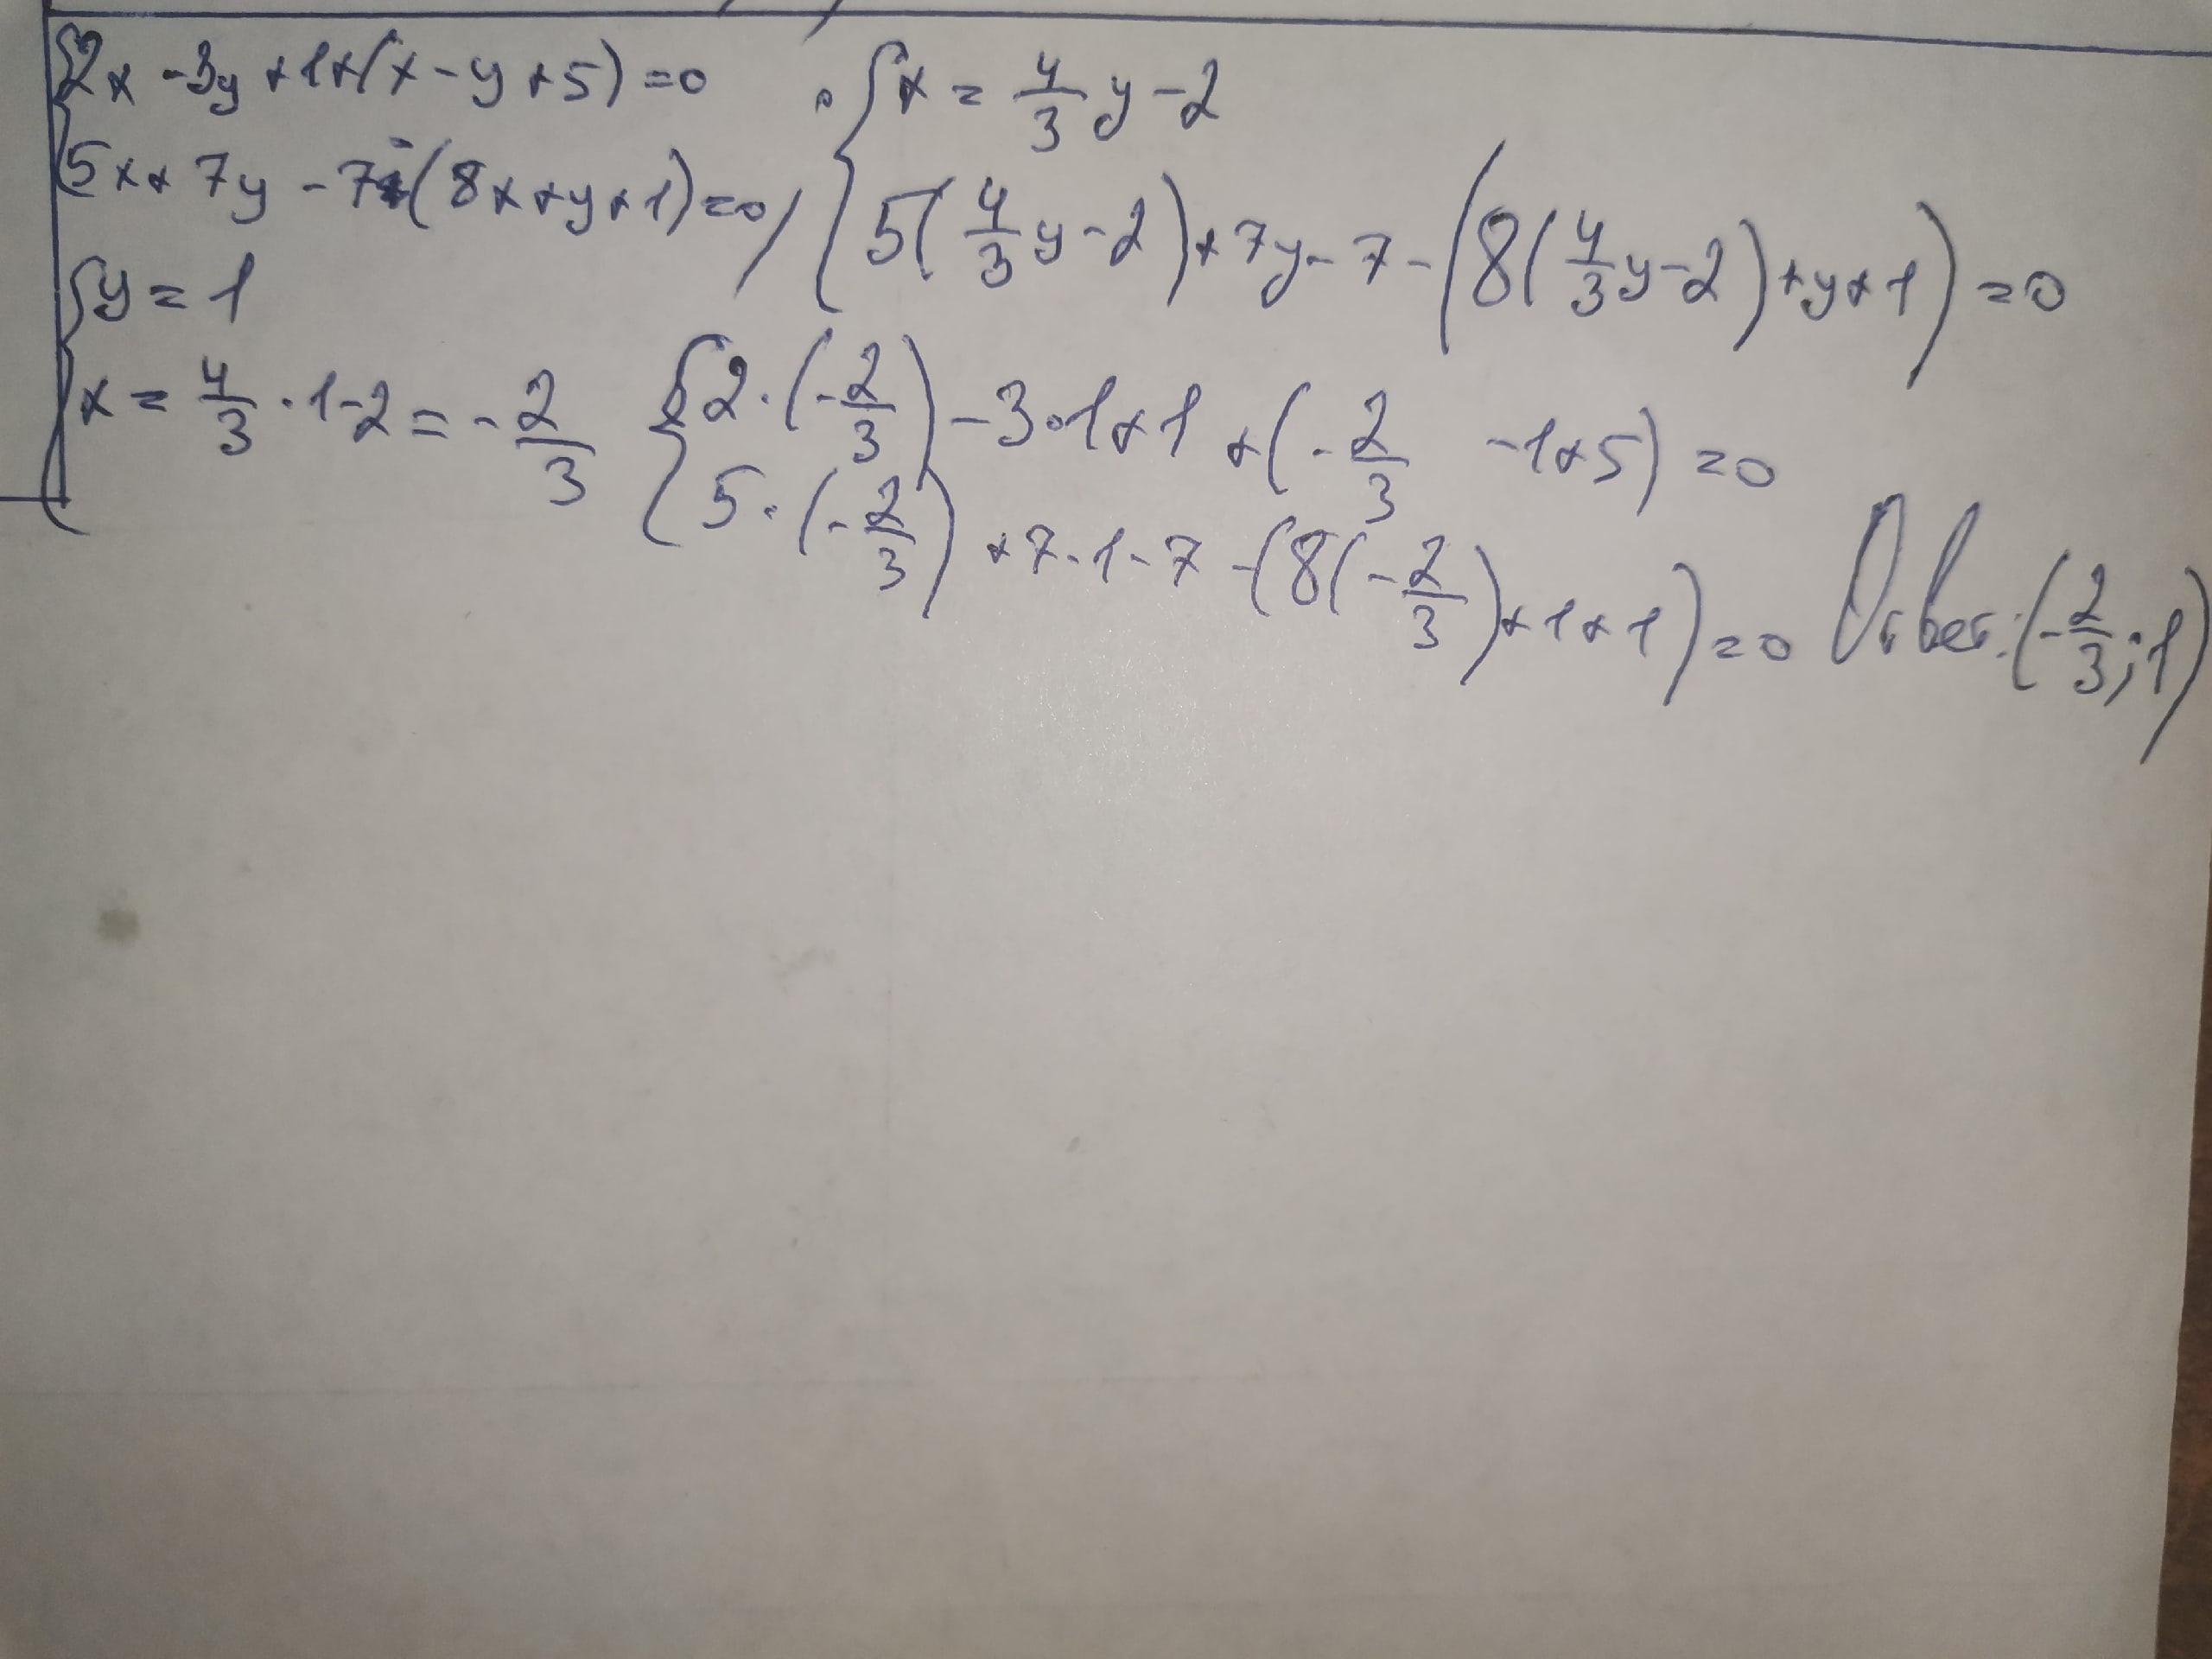 {2x - 3y + 1 + (x - y + 5) = 0
{5x + 7y - 7 - (8x + y + 1) = 0 /
{x = 4/3 y - 2
{5(4/3 y - 2) + 7y - 7 - (8(4/3 y - 2) + y + 1) = 0
{y = 1
{x = 4/3 · 1 - 2 = - 2/3
{2 · (- 2/3) - 3 · 1 + 1 + (- 2/3 - 1 + 5) = 0
{5 · (- 2/3) + 7 · 1 - 7 - (8(- 2/3) + 1 + 1) = 0
Ответ: (- 2/3; 1)